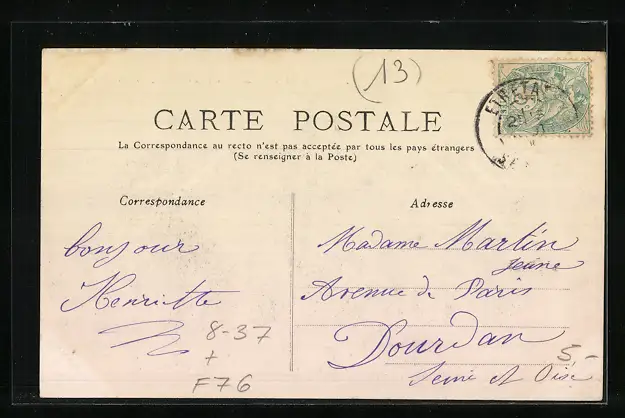 (13)
ETRETA
CARTE POSTALE
La Correspondance au recto n'est pas acceptée par tous les pays étrangers
(Se renseigner à la Poste)
Correspondance
Adresse
bonjour
Henriette
Madame Martin
jeune
Avenue de Paris
Dourdan
Seine et Oise
8-37
+
F76
5,-